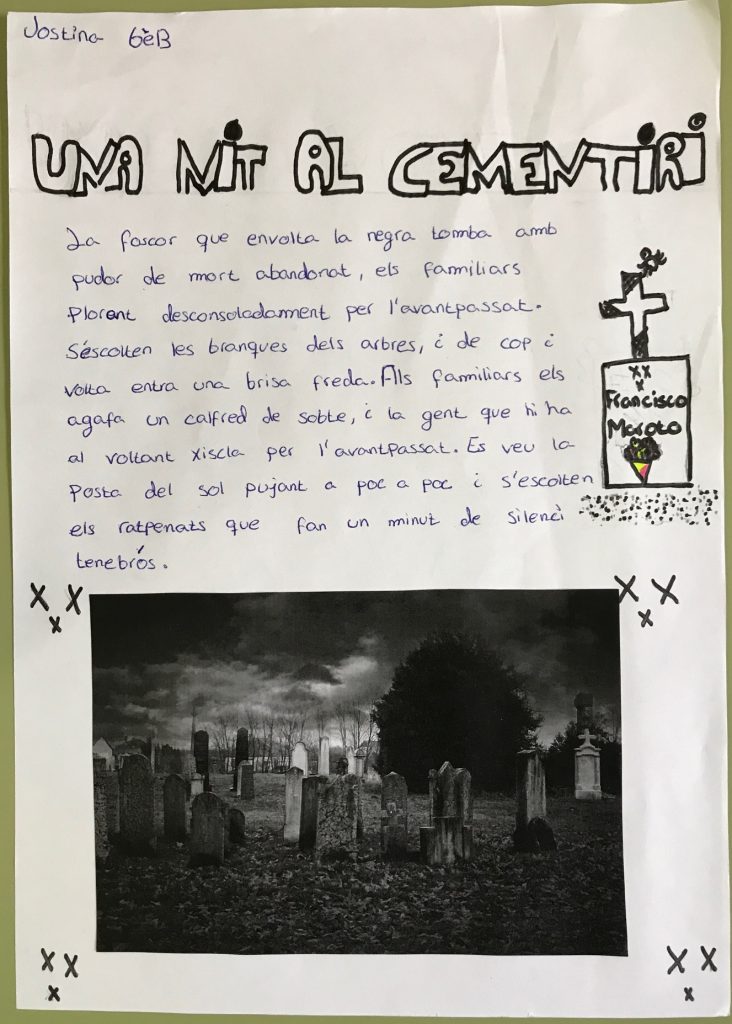 Jostina 6èB
UNA NIT AL CEMENTIRI
La foscor que envolta la negra tomba amb
pudor de mort abandonat, els familiars
plorant desconsoladament per l'avantpassat.
S'escolten les branques dels arbres, i de cop i
volta entra una brisa freda. Als familiars els
agafa un calfred de sobte, i la gent que hi ha
al voltant xiscla per l'avantpassat. Es veu la
posta del sol pujant a poc a poc i s'escolten
els ratpenats que fan un minut de silenci
tenebrós.
XX
X
Francisco
Maroto
X X
X
X X
X
X X
X
X X
X